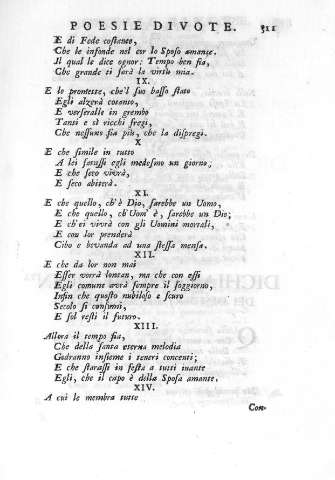 POESIE DIVOTE. 311
E di Fede costante,
Che le infonde nel cor lo Sposo amante.
Il qual le dice ognor: Tempo ben fia,
Che grande ti farà la virtù mia.
IX.
E lo promesse, che'l suo basso stato
Egli alzerà cotanto,
E verseralle in grembo
Tanti e sì ricchi fregi,
Che nessuno fia più, che la dispregi.
X
E che simile in tutto
A lei farassi egli medesmo un giorno;
E che seco vivrà,
E seco abiterà.
XI.
E che quello, ch'è Dio, sarebbe un Uomo,
E che quello, ch'Uom' è, sarebbe un Dio;
E ch'ei vivrà con gli Uomini mortali,
E con lor prenderà
Cibo e bevanda ad una stessa mensa.
XII.
E che da lor non mai
Esser vorrà lontan, ma che con essi
Egli comune avrà sempre il soggiorno,
Infin che questo nubiloso e scuro
Secolo si consumi,
E sol resti il futuro.
XIII.
Allora il tempo fia,
Che della santa eterna melodia
Godranno insieme i teneri concenti;
E che starassi in festa a tutti inante
Egli, che il capo è della Sposa amante.
XIV.
A cui le membra tutte
Con-